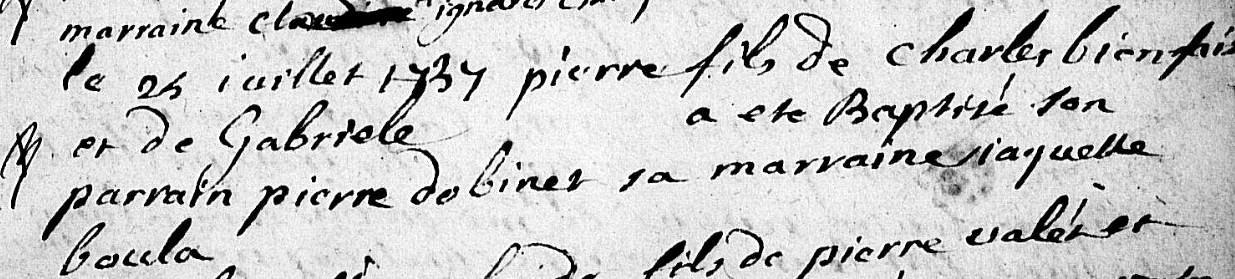 marraine
le 25 iuillet 1737 pierre fils de Charles bienfais
et de Gabriele a ete Baptisé son
parrain pierre dobinet sa marraine iaquette
boula
fils de pierre valet et